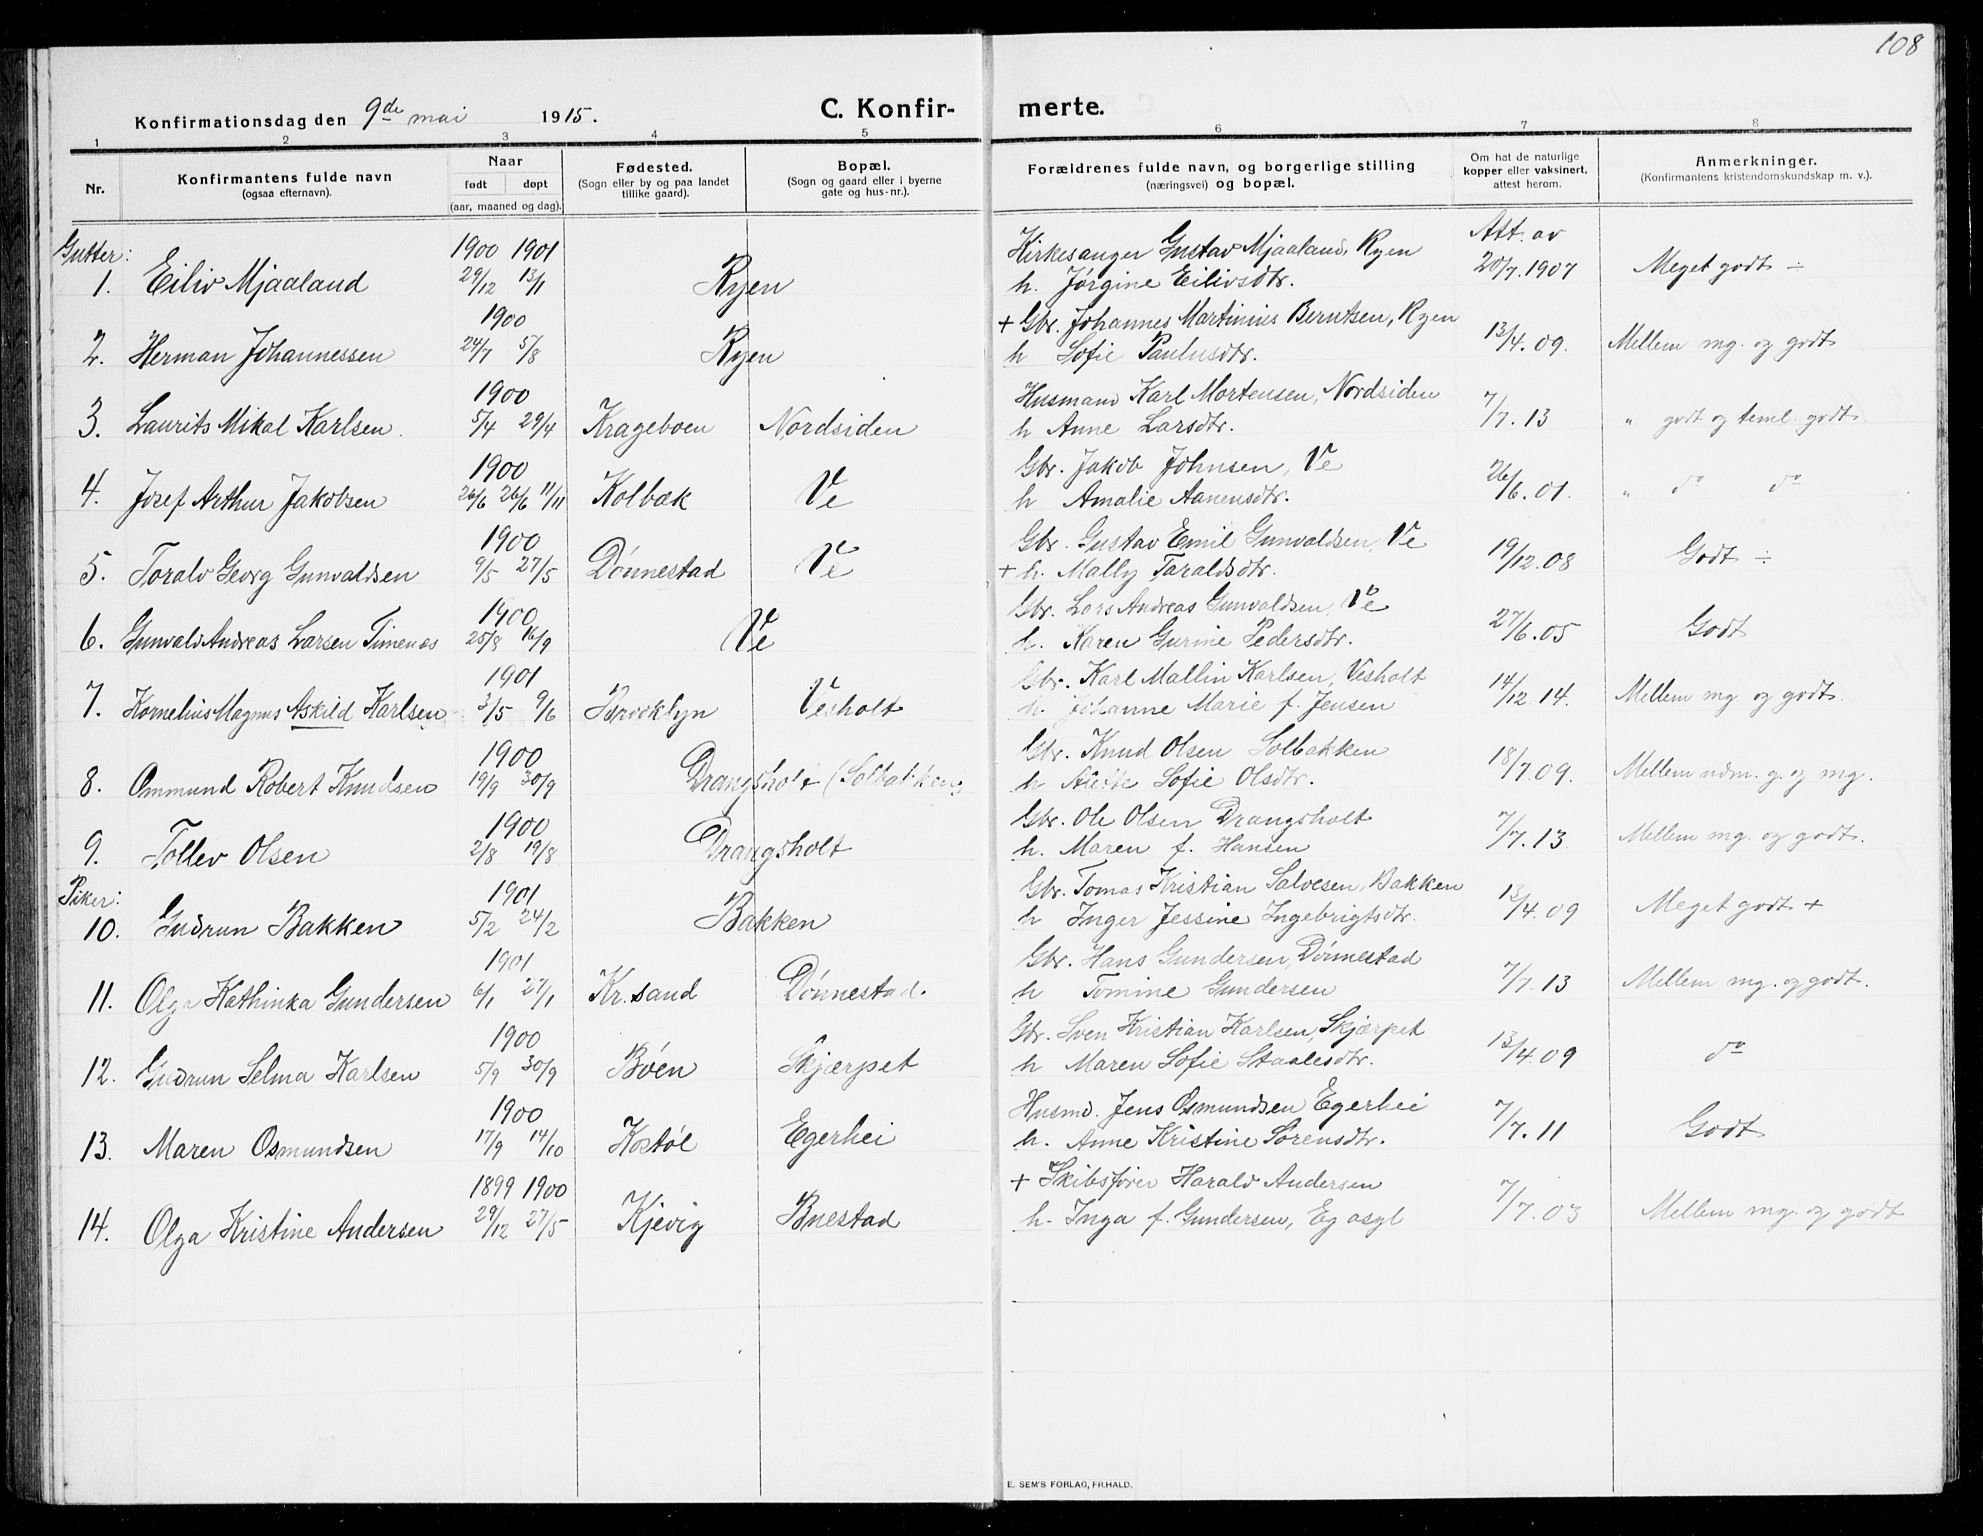 108
Konfirmationsdag den 9de mai 1915.
C. Konfir-
merte.
1 2 3 4 5 6 7 8
Nr.
Konfirmantens fulde navn
(ogsaa efternavn).
Naar
født døpt
(aar, maaned og dag).
Fødested.
(Sogn eller by og paa landet
tillike gaard).
Bopæl.
(Sogn og gaard eller i byerne
gate og hus-nr.).
Forældrenes fulde navn, og borgerlige stilling
(næringsvei) og bopæl.
Om hat de naturlige
kopper eller vaksinert,
attest herom.
Anmerkninger.
(Konfirmantens kristendomskundskap m. v.).
Gutter: 1900 1901 Kirkesanger Gustav Mjaaland, Ryen Att. av
1. Eiliv Mjaaland 29/12 13/1 Ryen h. Jørgine Eilivsdtr. 20/7.1907 Meget godt ÷
1900 + Gbr. Johannes Martinius Berntsen, Ryen
2. Herman Johannessen 24/7 5/8 Ryen h Sofie Paulusdtr. 13/4.09. Mellem mg. og godt
1900 Husmand Karl Mortensen, Nordsiden
3. Laurits Mikal Karlsen. 5/4 29/4 Krageboen Nordsiden h Anne Larsdtr. 7/7.13 " godt og teml. godt
1900 Gbr. Jakob Johnsen, Ve
4. Josef Arthur Jakobsen 26/6 26/6 11/11 Kolbæk Ve h Amalie Aanensdtr. 26/6.01. " do do
1900 Gbr. Gustav Emil Gunvaldsen, Ve
5. Toralv Georg Gunvaldsen 9/5 27/5 Dönnestad Ve + h. Mally Taraldsdtr. 19/12.08 Godt ÷
1900 Gbr. Lars Andreas Gunvaldsen, Ve
6. Gunvald Andreas Larsen Timenes 25/8 16/9 Ve h. Karen Gurine Pedersdtr. 27/6.05 Godt
1901 Gbr. Karl Mallin Karlsen, Vesholt
7. Kornelius Magnus Askild Karlsen 3/5 9/6 Brooklyn Vesholt h. Johanne Marie f. Jensen 14/12.14. Mellem mg. og godt.
1900 Gbr. Knud Olsen Solbakken
8. Ommund Robert Knudsen 19/9 30/9 Drangsholt (Solbakken) h Sofie Olsdtr. 18/7.09. Mellem udm. g. og mg.
1900 Gbr. Ole Olsen Drangsholt
9. Tollev Olsen 2/8 19/8 Drangsholt h. Maren f. Hansen 7/7.13 Mellem mg. og godt.
Piker: 1901 Gbr. Tomas Kristian Salvesen, Bakken
10. Gudrun Bakken 5/2 24/2 Bakken h Inger Jessine Ingebrigtsdtr. 13/4.09 Meget godt +
1901 Gbr. Hans Gundersen, Dönnestad
11. Olga Kathinka Gundersen 6/1 27/1 Kr.sand Dönnestad. h Tomine Gundersen 7/7.13 Mellem mg. og godt.
1900 Gbr. Sven Kristian Karlsen, Skjærpet
12. Gudrun Selma Karlsen 5/9 30/9 Böen Skjærpet h Maren Sofie Staalesdtr. 13/4.09 do
1900 Husmd. Jens Osmundsen Egerhei
13. Maren Osmundsen 17/9 14/10 Kostöl Egerhei h. Anne Kristine Sörensdtr. 7/7.11 Godt
1899 1900 + Skibsförer Harald Andersen
14. Olga Kristine Andersen 29/12 27/5 Kjevig Bnestad h. Inga f. Gundersen, Eg asyl 7/7.03 Mellem mg. og godt
E. SEM'S FORLAG, FR.HALD.